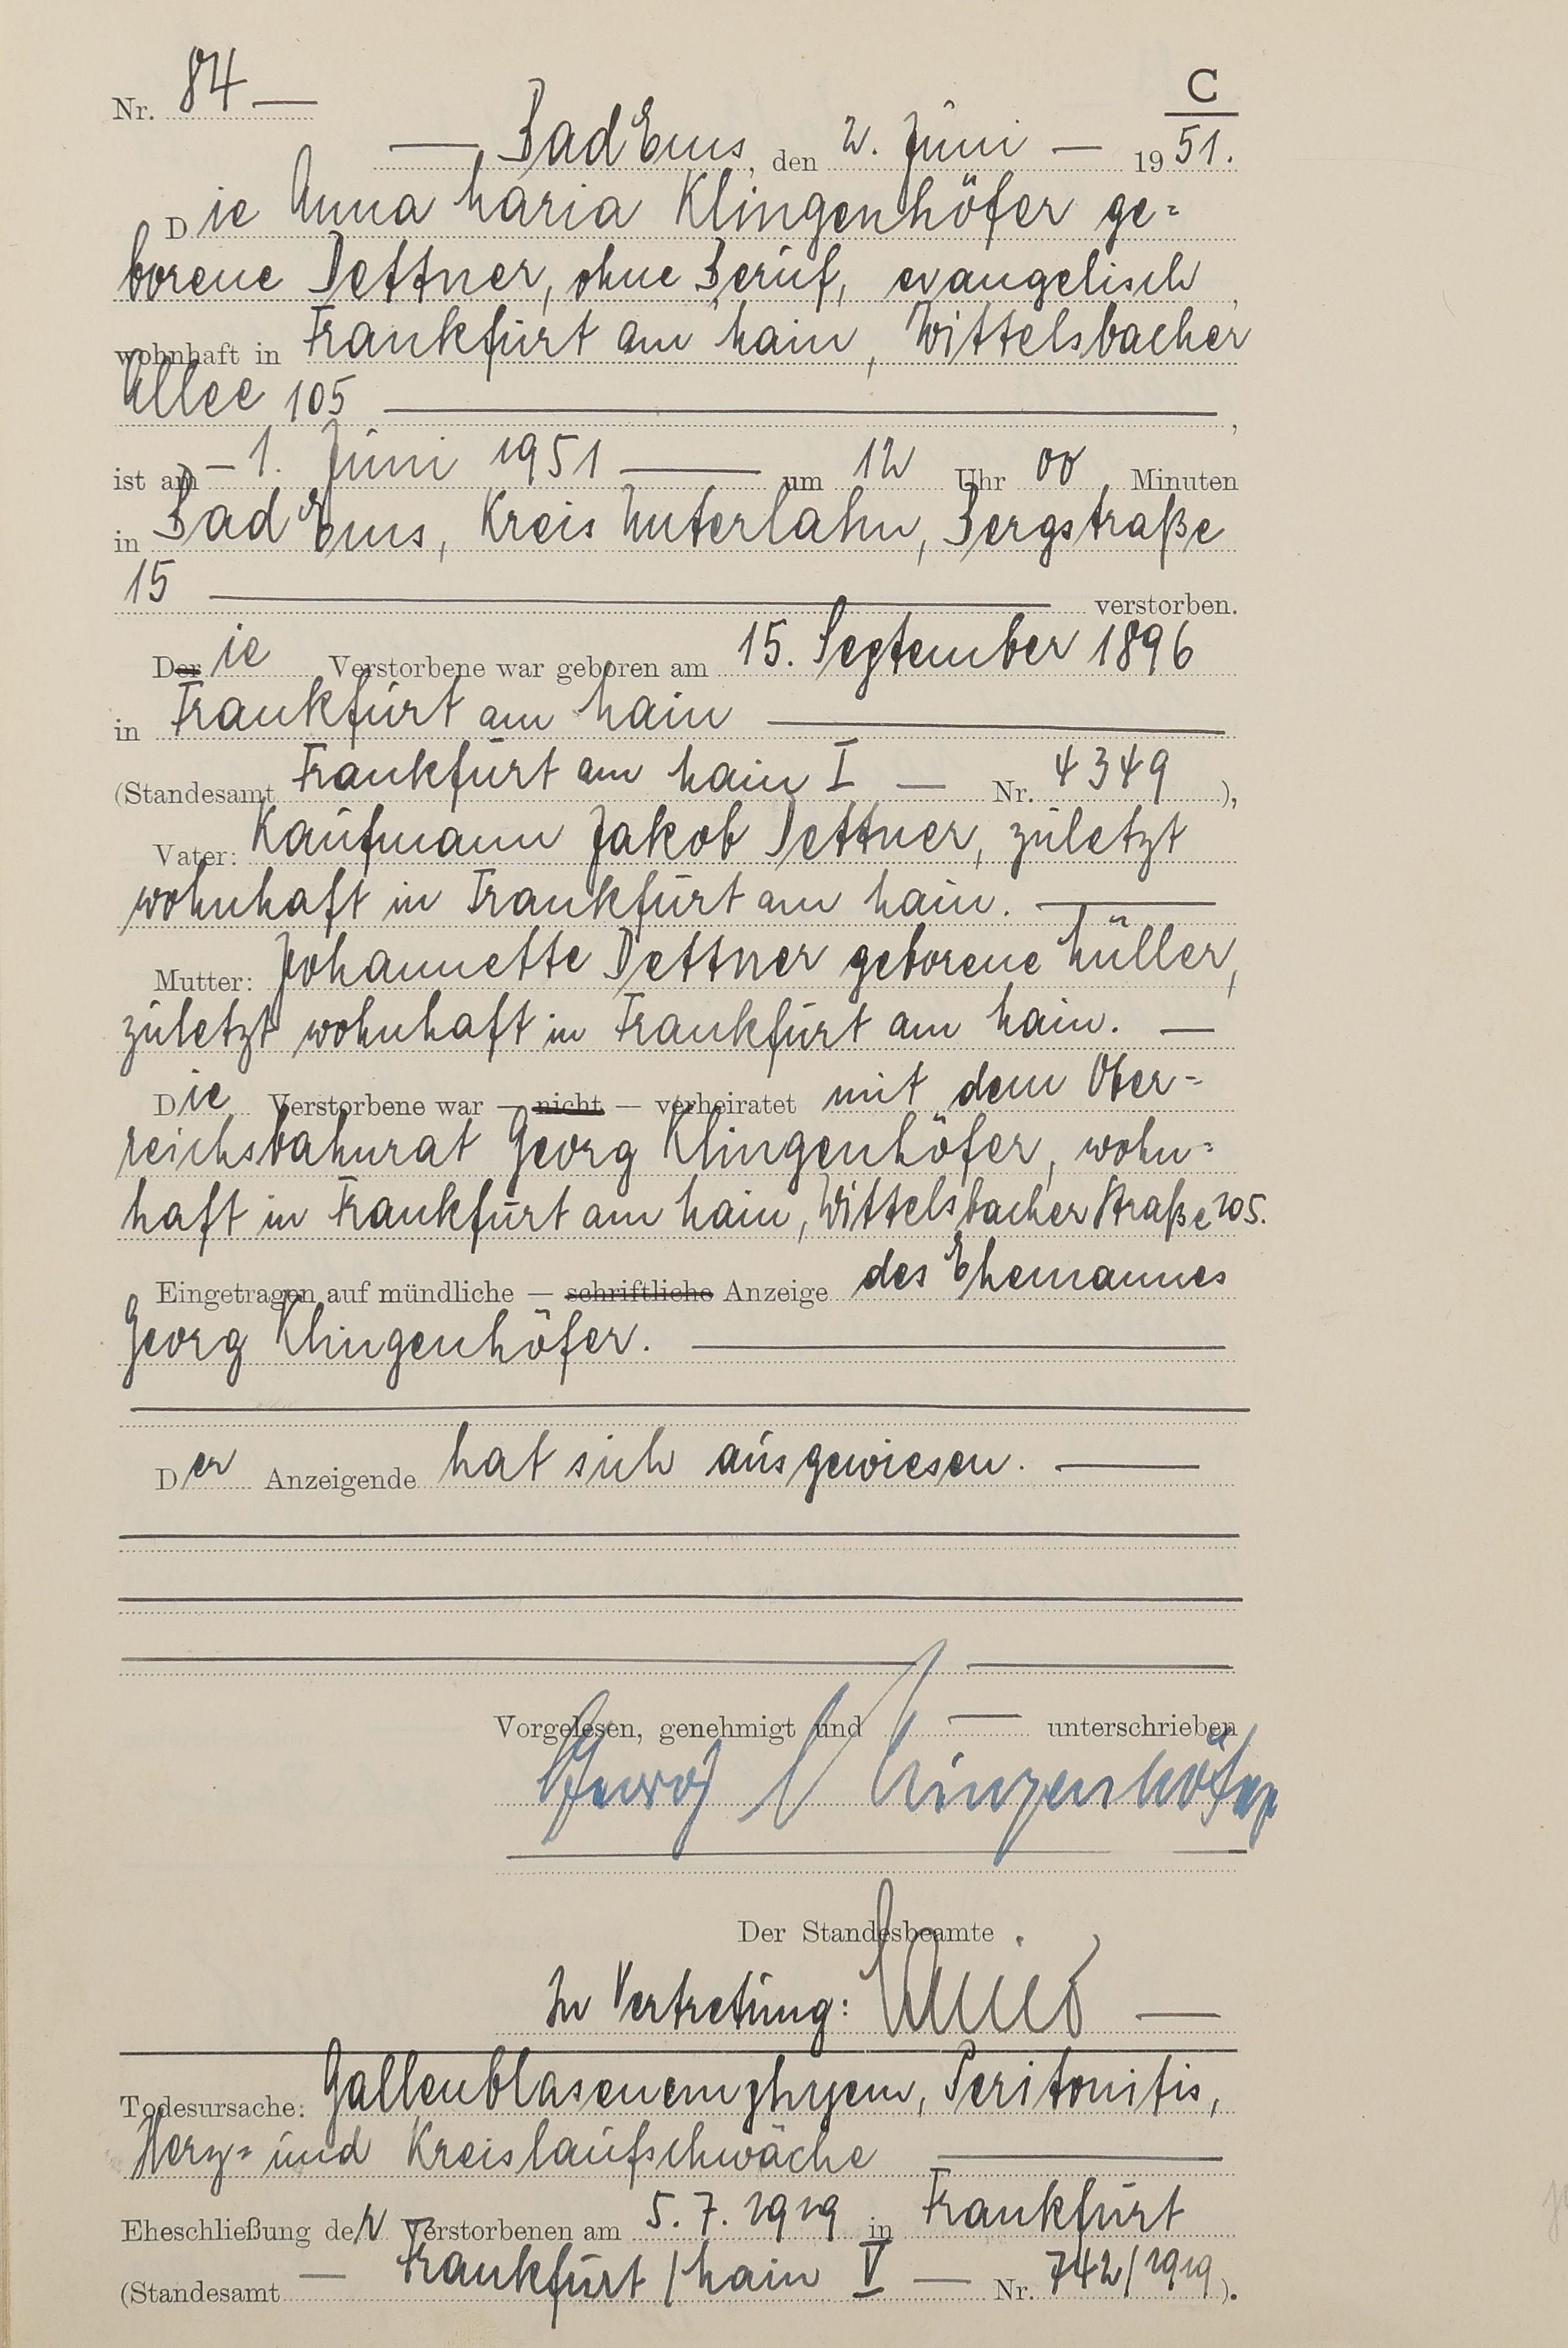 C
Nr. 84 —
— Bad Ems, den 2. Juni — 1951.
Die Anna Maria Klingenhöfer ge=
borene Dettner, ohne Beruf, evangelisch,
wohnhaft in Frankfurt am Main, Wittelsbacher
Allee 105 —,
ist am — 1. Juni 1951 — um 12 Uhr 00 Minuten
in Bad Ems, Kreis Unterlahn, Bergstraße
15 — verstorben.
Der ie Verstorbene war geboren am 15. September 1896
in Frankfurt am Main —
(Standesamt Frankfurt am Main I — Nr. 4349),
Vater: Kaufmann Jakob Dettner, zuletzt
wohnhaft in Frankfurt am Main. —
Mutter: Johannette Dettner geborene Müller,
zuletzt wohnhaft in Frankfurt am Main. —
Die Verstorbene war — nicht — verheiratet mit dem Ober=
reichsbahnrat Georg Klingenhöfer, wohn=
haft in Frankfurt am Main, Wittelsbacher Straße 105.
Eingetragen auf mündliche — schriftliche Anzeige des Ehemannes
Georg Klingenhöfer. —
Der Anzeigende hat sich ausgewiesen. —
Vorgelesen, genehmigt und — unterschrieben
Georg Klingenhöfer
Der Standesbeamte
In Vertretung: —
Todesursache: Gallenblasenemphyem, Peritonitis,
Herz= und Kreislaufschwäche —
Eheschließung der Verstorbenen am 5.7.1919 in Frankfurt
(Standesamt — Frankfurt/Main V — Nr. 742/1919).